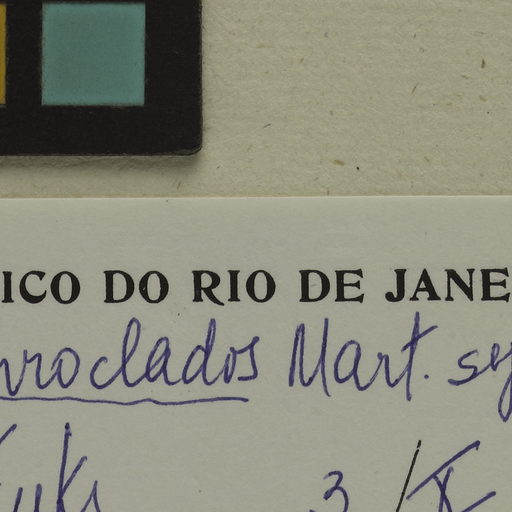 ICO DO RIO DE JANE
roclados Mart.
3/X